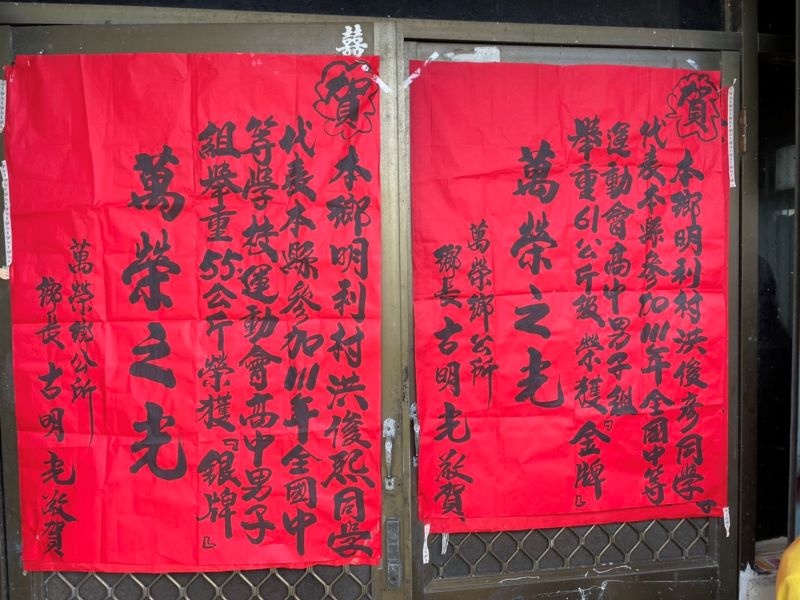 囍
賀
本鄉明利村洪俊熙同學
代表本縣參加111年全國中
等學校運動會高中男子
組舉重55公斤榮獲『銀牌』
萬榮之光
萬榮鄉公所
鄉長古明光敬賀
賀
本鄉明利村洪俊彥同學
代表本縣參加111年全國中等
運動會高中男子組
舉重61公斤級榮獲『金牌』
萬榮之光
萬榮鄉公所
鄉長古明光敬賀